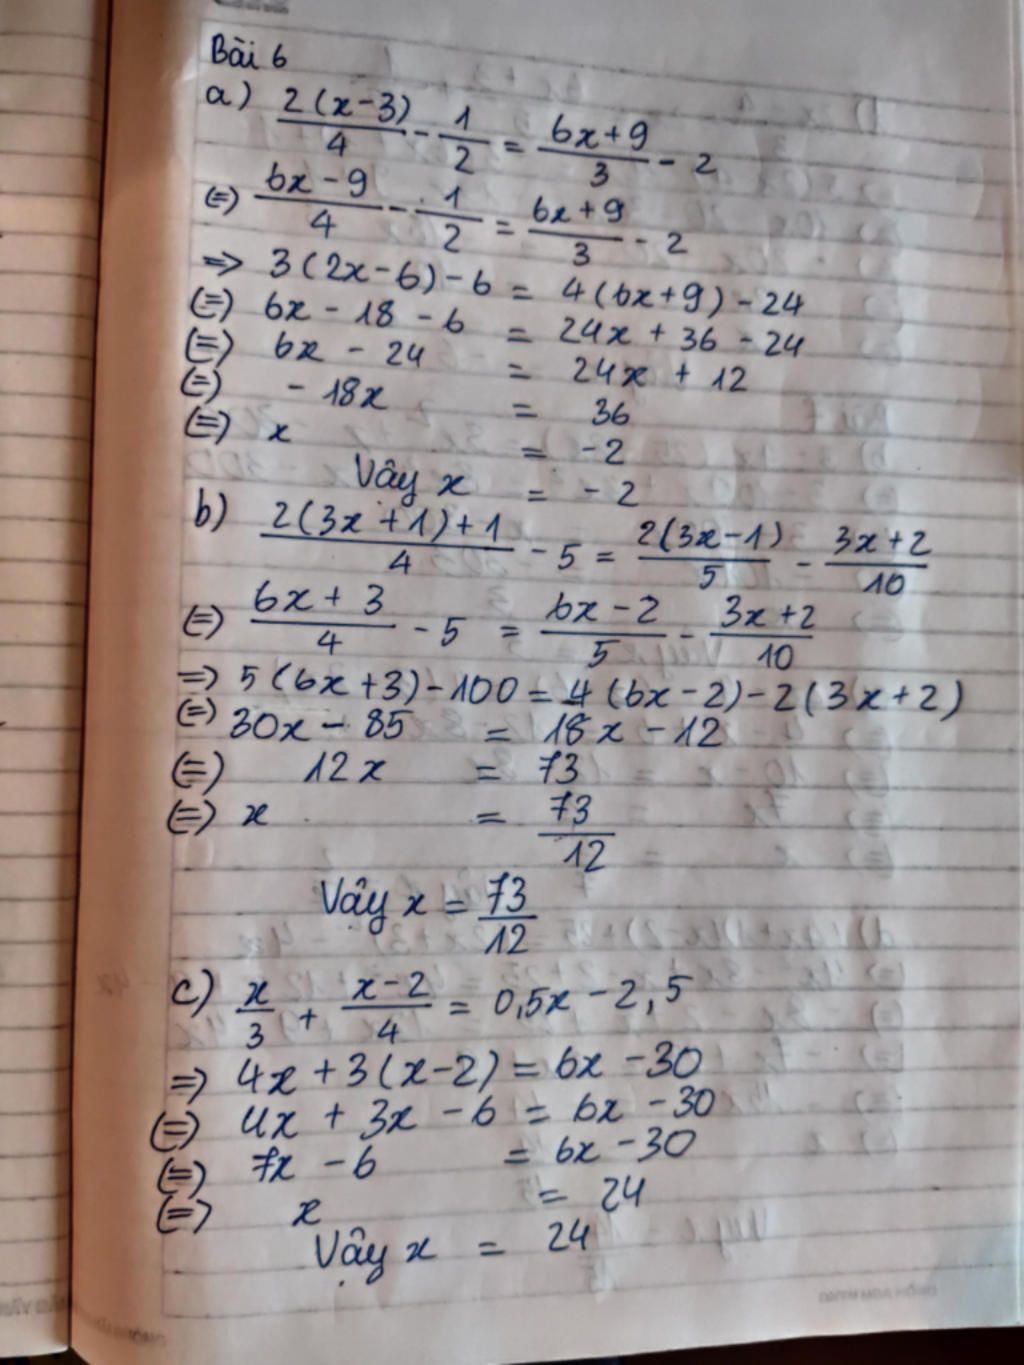 Bài 6
a) 2(x-3)/4 - 1/2 = 6x+9/3 - 2
(=) 6x-9/4 - 1/2 = 6x+9/3 - 2
=> 3(2x-6)-6 = 4(6x+9)-24
(=) 6x - 18 - 6 = 24x + 36 - 24
(=) 6x - 24 = 24x + 12
(=) - 18x = 36
(=) x = -2
Vây x = - 2
b) 2(3x+1)+1/4 - 5 = 2(3x-1)/5 - 3x+2/10
(=) 6x+3/4 - 5 = 6x-2/5 - 3x+2/10
=> 5(6x+3)-100 = 4(6x-2)-2(3x+2)
(=) 30x - 85 = 18x - 12
(=) 12x = 73
(=) x = 73/12
Vậy x = 73/12
c) x/3 + x-2/4 = 0,5x - 2,5
=> 4x + 3(x-2) = 6x - 30
(=) 4x + 3x - 6 = 6x - 30
(=) 7x - 6 = 6x - 30
(=) x = 24
Vậy x = 24